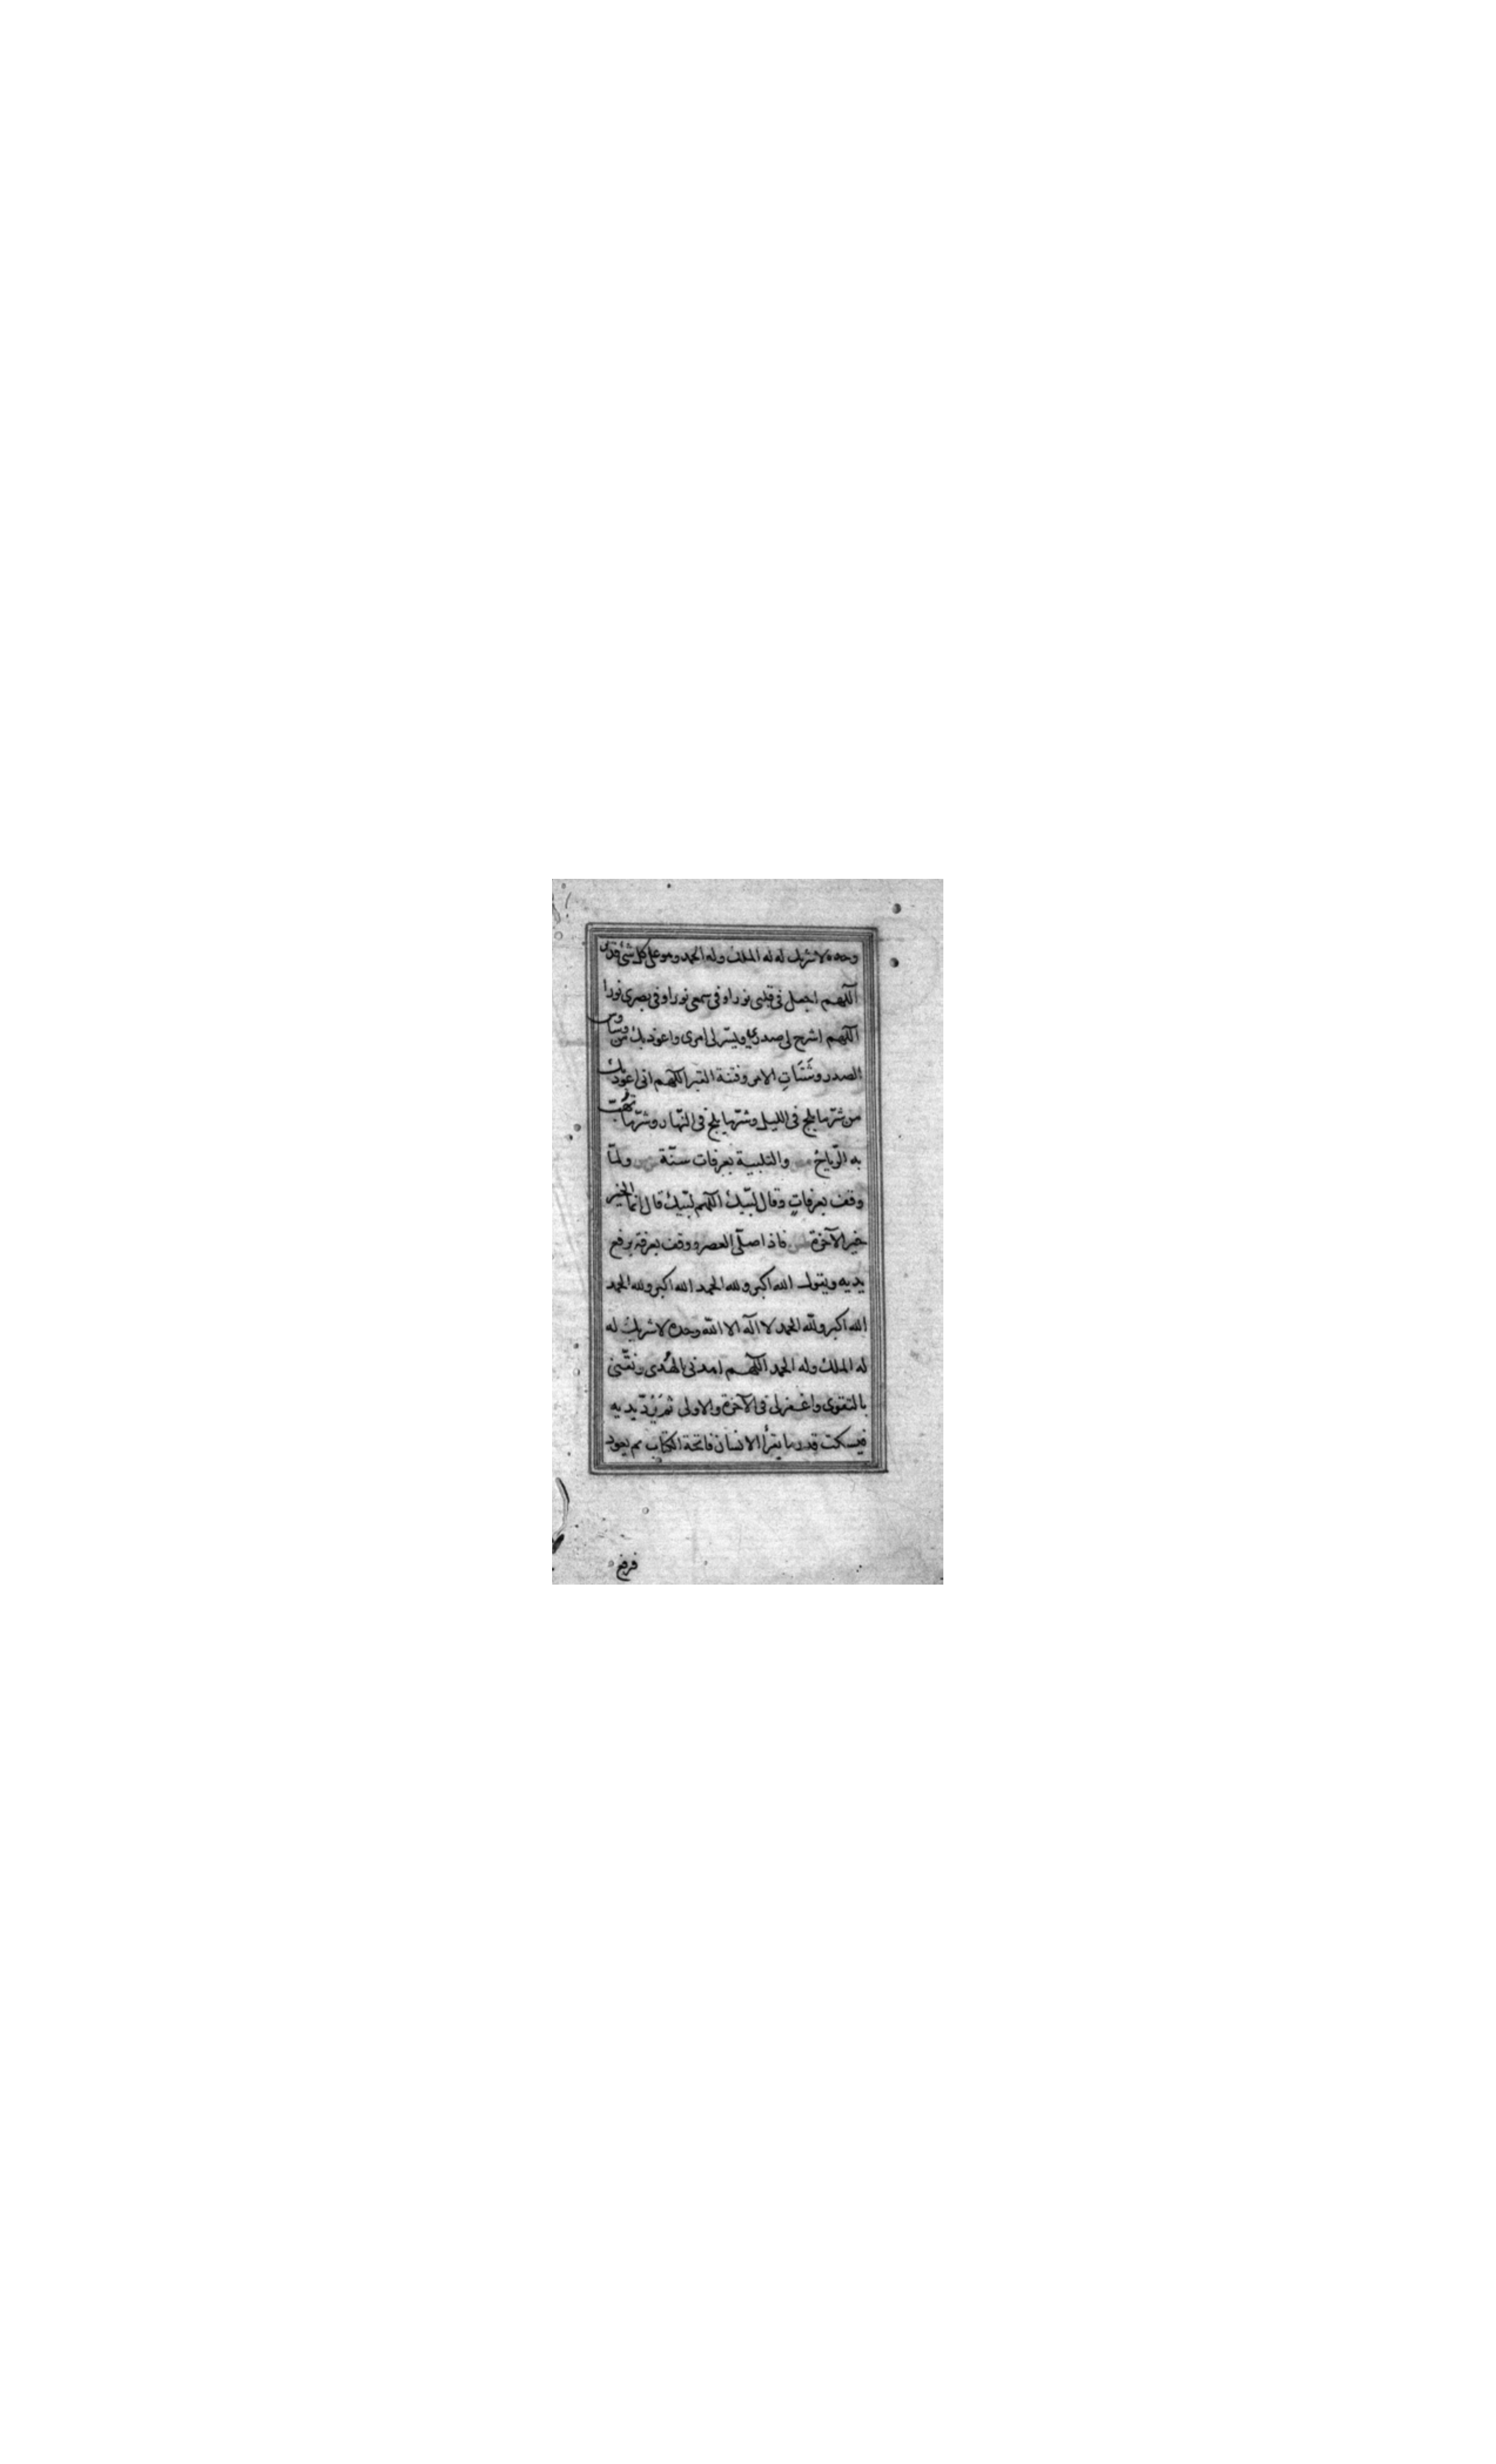 وحده لا شريك له له الملك وله الحمد وهو على كل شئ قدير
اللهم اجعل فى قلبى نورا وفى سمعى نورا وفى بصرى نورا
اللهم اشرح لى صدرى ويسّر لى امرى واعوذ بك من وساوس
الصدر وشَتَاتِ الامر وفتنة القبر اللهم انى اعوذ بك
من شرّ ما يلج فى الليل وشرّ ما يلج فى النّهار وشرّ ما تهُبّ
به الرّياح والتلبية بعرفات سنّة ولمّا
وقف بعرفاتٍ وقال لبّيك اللهم لبّيك قال إنما الخير
خير الآخرة فاذا صلّى العصر ووقف بعرفة يرفع
يديه ويقول الله اكبر ولله الحمد الله اكبر ولله الحمد
الله اكبر ولله الحمد لا اله الا الله وحده لا شريك له
له الملك وله الحمد اللهم اهدنى بالهُدى ونقّنى
بالتقوى واغفر لى فى الآخرة والاولى ثم يَرُدّ يديه
فيسكت قدر ما يقرأ الانسان فاتحة الكتاب ثم يعود
فيرفع